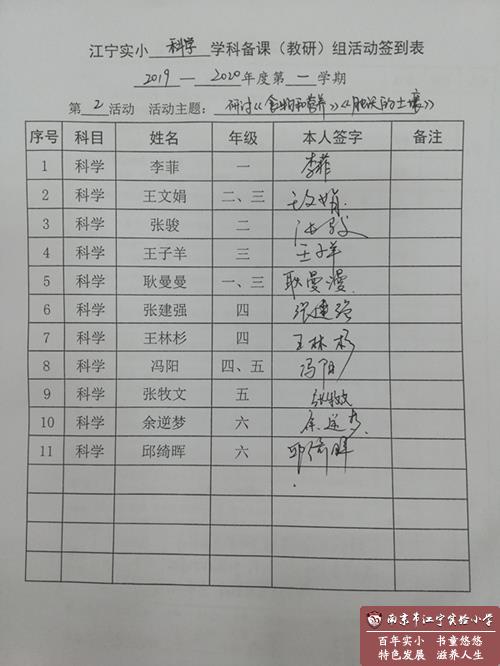 江宁实小 科学 学科备课（教研）组活动签到表
2019 — 2020 年度第 一 学期
第 2 活动 活动主题： 研讨《食物和营养》《肥沃的土壤》
序号 科目 姓名 年级 本人签字 备注
1 科学 李菲 一 李菲
2 科学 王文娟 二、三 王文娟
3 科学 张骏 二 张骏
4 科学 王子羊 三 王子羊
5 科学 耿曼曼 一、三 耿曼漫
6 科学 张建强 四 张建强
7 科学 王林杉 四 王林杉
8 科学 冯阳 四、五 冯阳
9 科学 张牧文 五 张牧文
10 科学 余逆梦 六 余逆梦
11 科学 邱绮晖 六 邱绮晖
南京市江宁实验小学
百年实小 书童悠悠
特色发展 滋养人生